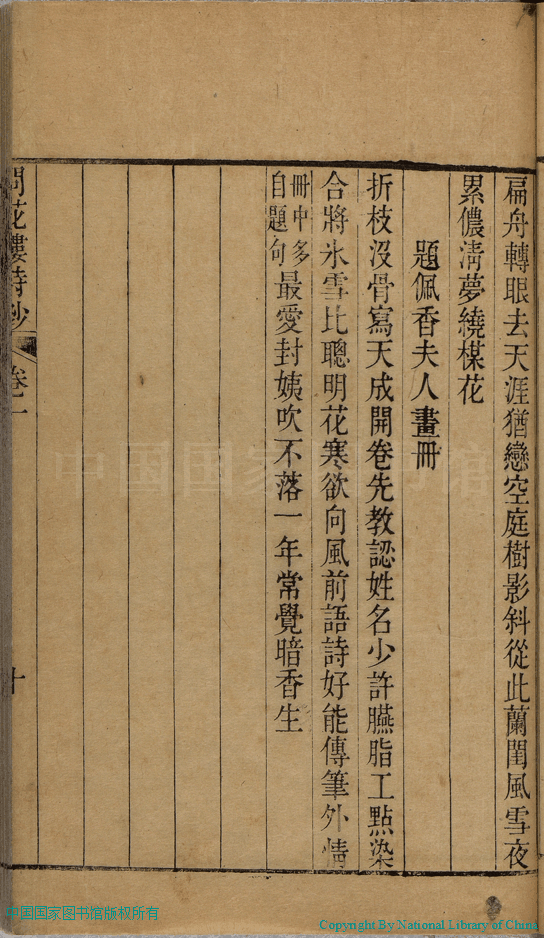 扁舟轉眼去天涯猶戀空庭樹影斜從此蘭閨風雪夜
累儂淸夢繞楳花
題佩香夫人畫冊
折枝沒骨寫天成開卷先教認姓名少許臙脂工點染
合將氷雪比聰明花寒欲向風前語詩好能傳筆外情
冊中多
自題句
最愛封姨吹不落一年常覺暗香生
問花樓詩鈔
卷一
十
中国国家图书馆
中国国家图书馆版权所有
Copyright By National Library of China